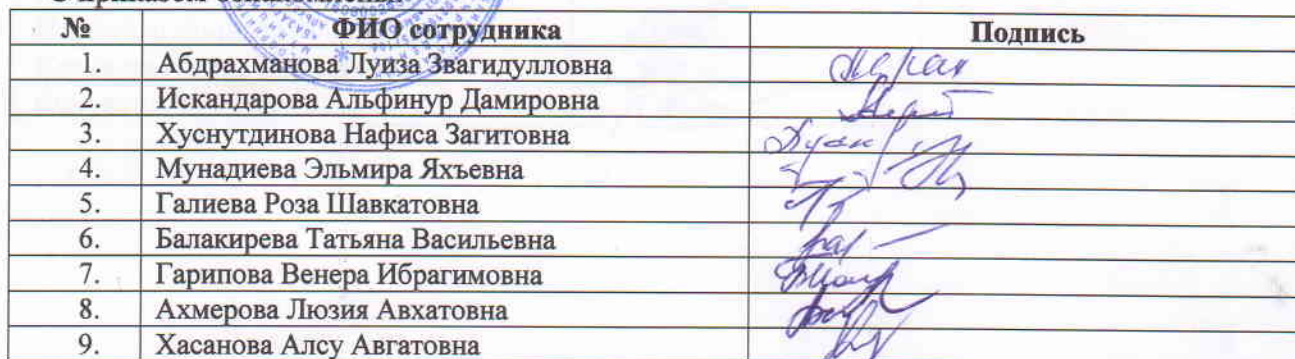 С приказом ознакомлены:
№ ФИО сотрудника Подпись
1. Абдрахманова Луиза Звагидулловна
2. Искандарова Альфинур Дамировна
3. Хуснутдинова Нафиса Загитовна
4. Мунадиева Эльмира Яхъевна
5. Галиева Роза Шавкатовна
6. Балакирева Татьяна Васильевна
7. Гарипова Венера Ибрагимовна
8. Ахмерова Люзия Авхатовна
9. Хасанова Алсу Авгатовна